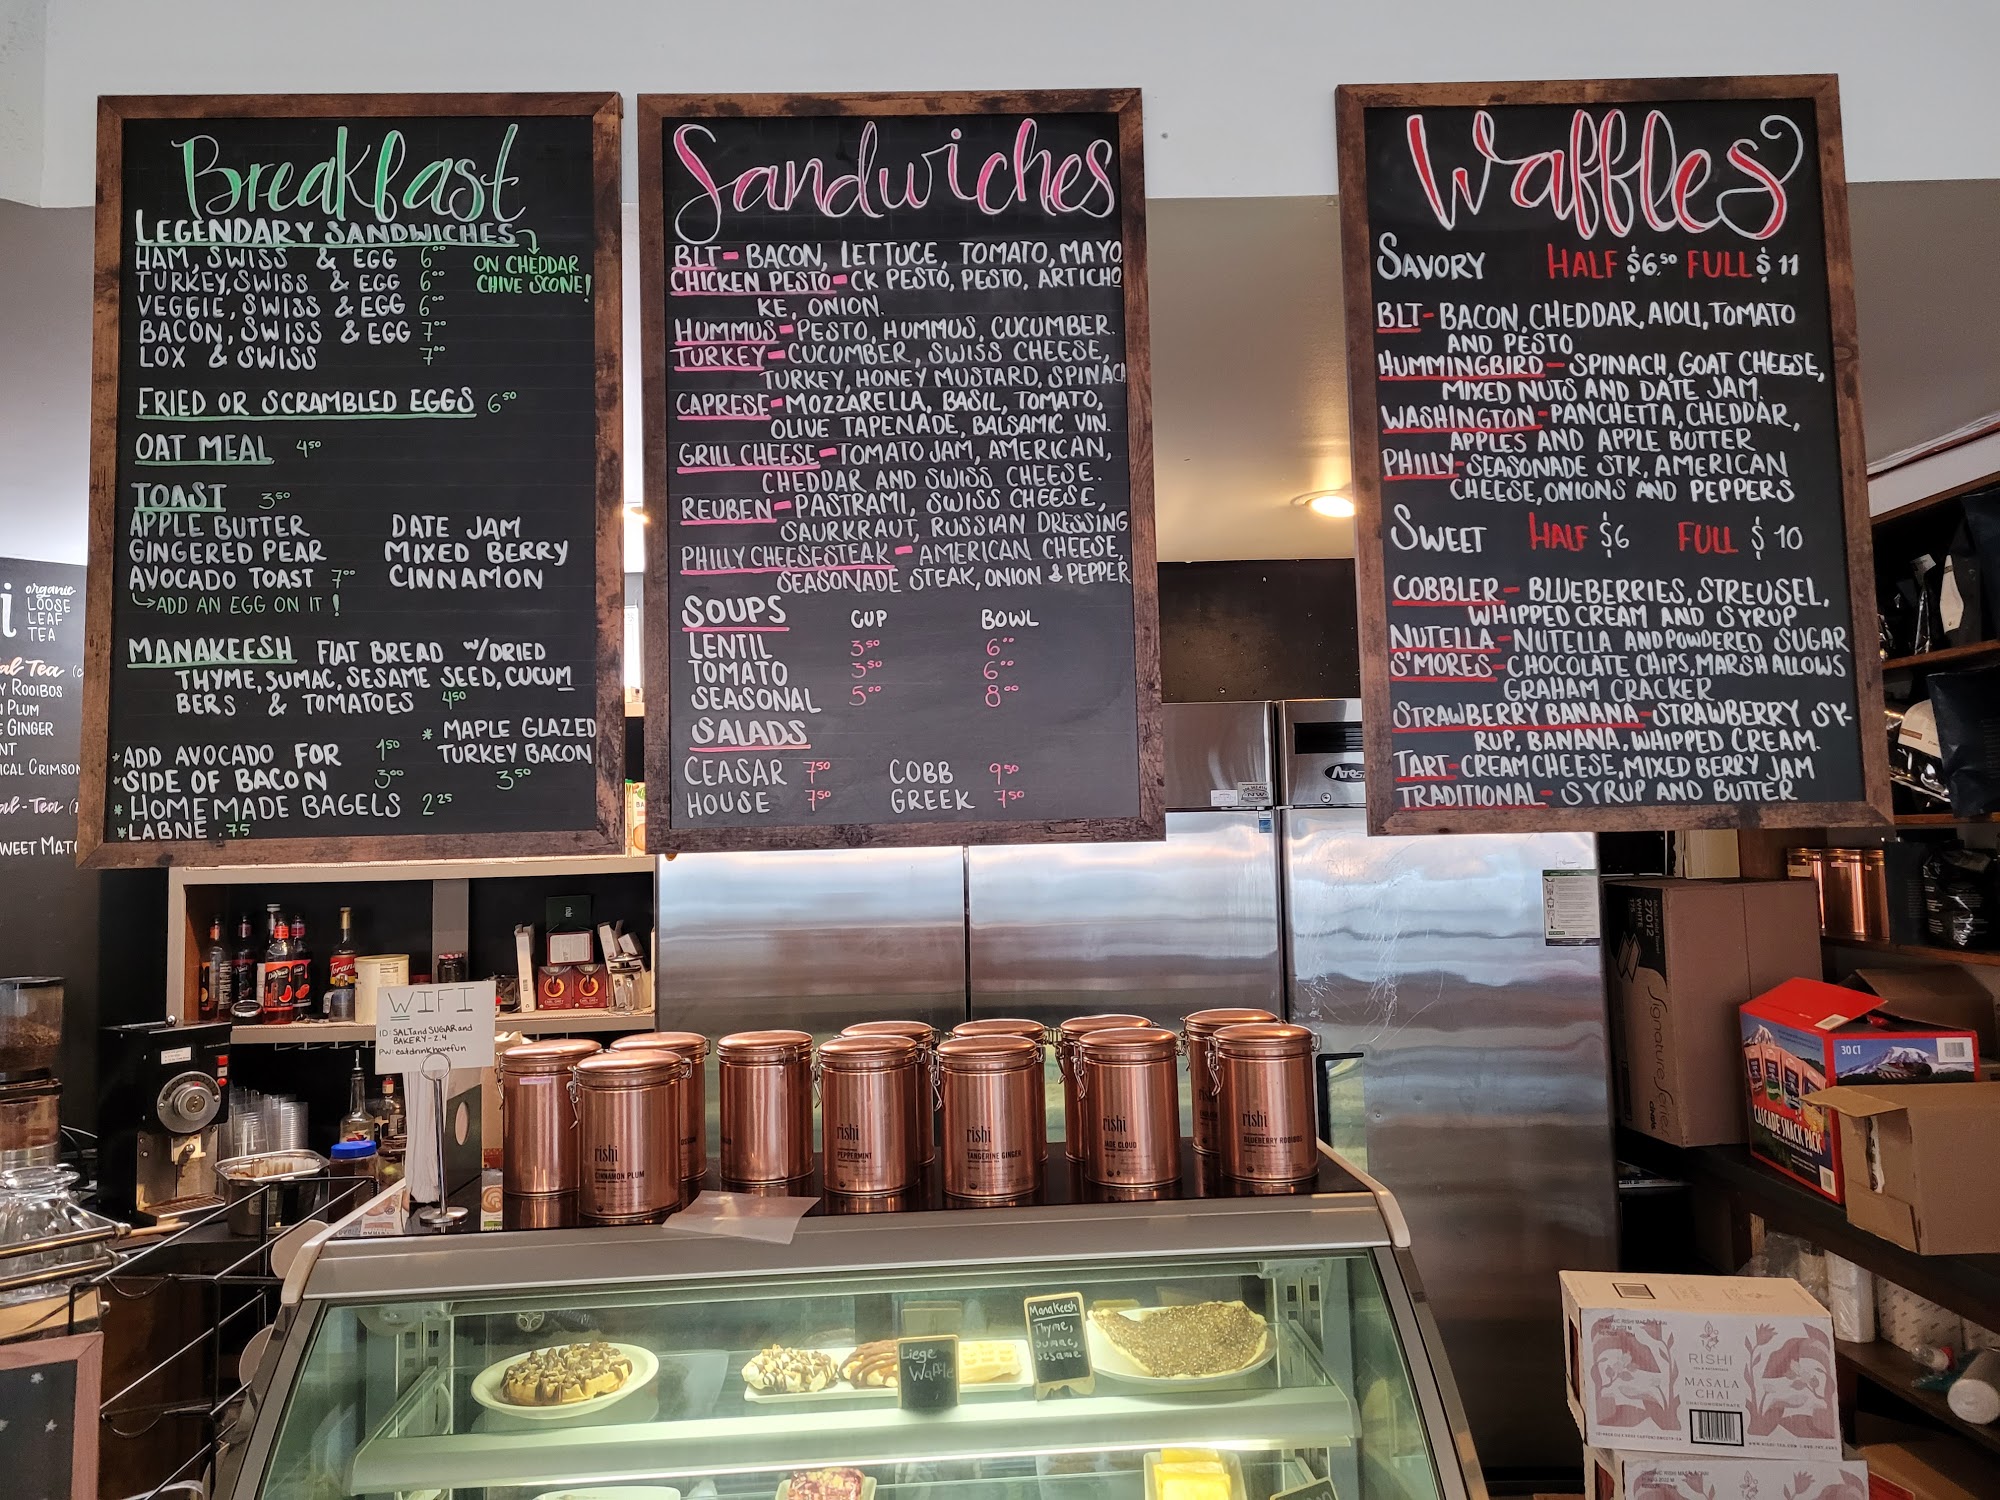 Breakfast
LEGENDARY SANDWICHES
HAM, SWISS & EGG 6⁰⁰
TURKEY, SWISS & EGG 6⁰⁰
VEGGIE, SWISS & EGG 6⁰⁰
BACON, SWISS & EGG 7⁰⁰
LOX & SWISS 7⁰⁰
ON CHEDDAR
CHIVE SCONE!
FRIED OR SCRAMBLED EGGS 6⁵⁰
OAT MEAL 4⁵⁰
TOAST 3⁵⁰
APPLE BUTTER DATE JAM
GINGERED PEAR MIXED BERRY
AVOCADO TOAST 7⁰⁰ CINNAMON
ADD AN EGG ON IT!
MANAKEESH FLAT BREAD W/DRIED
THYME, SUMAC, SESAME SEED, CUCUM
BERS & TOMATOES 4⁵⁰
* ADD AVOCADO FOR 1⁵⁰
* SIDE OF BACON 3⁰⁰
* HOMEMADE BAGELS 2²⁵
* LABNE .75
* MAPLE GLAZED
TURKEY BACON
3⁵⁰
Sandwiches
BLT - BACON, LETTUCE, TOMATO, MAYO
CHICKEN PESTO - CK PESTO, PESTO, ARTICHO
KE, ONION.
HUMMUS - PESTO, HUMMUS, CUCUMBER.
TURKEY - CUCUMBER, SWISS CHEESE,
TURKEY, HONEY MUSTARD, SPINACH
CAPRESE - MOZZARELLA, BASIL, TOMATO,
OLIVE TAPENADE, BALSAMIC VIN.
GRILL CHEESE - TOMATO JAM, AMERICAN,
CHEDDAR AND SWISS CHEESE.
REUBEN - PASTRAMI, SWISS CHEESE,
SAURKRAUT, RUSSIAN DRESSING
PHILLY CHEESESTEAK - AMERICAN CHEESE,
SEASONADE STEAK, ONION & PEPPER
SOUPS CUP BOWL
LENTIL 3⁵⁰ 6⁰⁰
TOMATO 3⁵⁰ 6⁰⁰
SEASONAL 5⁰⁰ 8⁰⁰
SALADS
CEASAR 7⁵⁰ COBB 9⁵⁰
HOUSE 7⁵⁰ GREEK 7⁵⁰
Waffles
SAVORY HALF $6.⁵⁰ FULL $11
BLT - BACON, CHEDDAR, AIOLI, TOMATO
AND PESTO
HUMMINGBIRD - SPINACH, GOAT CHEESE,
MIXED NUTS AND DATE JAM.
WASHINGTON - PANCHETTA, CHEDDAR,
APPLES AND APPLE BUTTER
PHILLY - SEASONADE STK, AMERICAN
CHEESE, ONIONS AND PEPPERS
SWEET HALF $6 FULL $10
COBBLER - BLUEBERRIES, STREUSEL,
WHIPPED CREAM AND SYRUP
NUTELLA - NUTELLA AND POWDERED SUGAR
S'MORES - CHOCOLATE CHIPS, MARSHALLOWS
GRAHAM CRACKER
STRAWBERRY BANANA - STRAWBERRY SY-
RUP, BANANA, WHIPPED CREAM.
TART - CREAM CHEESE, MIXED BERRY JAM
TRADITIONAL - SYRUP AND BUTTER
organic
LOOSE
LEAF
TEA
Y ROOIBOS
PLUM
GINGER
ICAL CRIMSON
WEET MATC
WIFI
ID: SALTandSUGARand
BAKERY-2.4
PW: eatdrinkhavefun
Torani
rishi
CINNAMON PLUM
rishi
PEPPERMINT
rishi
TANGERINE GINGER
rishi
JADE CLOUD
rishi
BLUEBERRY ROOIBOS
Liege
Waffle
Manakeesh
Thyme,
Sumac,
Sesame
27012
WHITE
Signature Series
30 CT
CASCADE SNACK PACK
RISHI
MASALA
CHAI